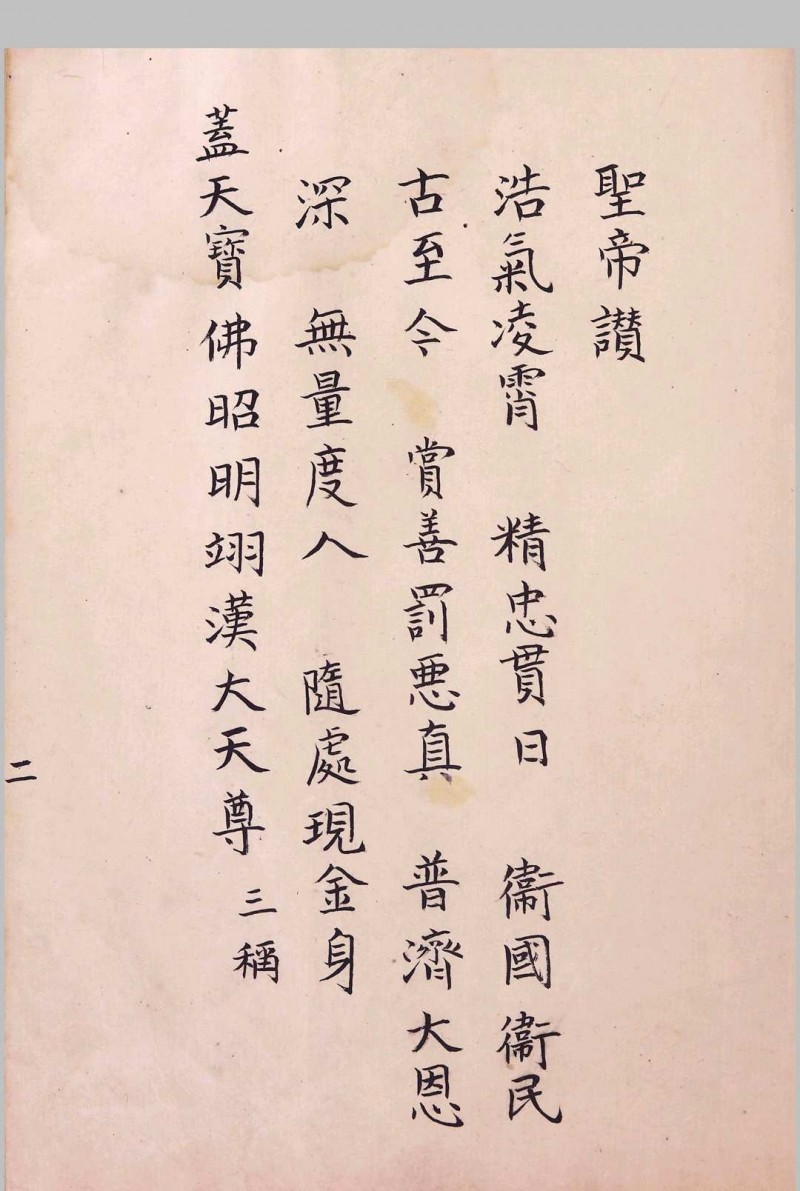 聖帝讃
浩氣凌霄　精忠貫日　衞國衞民
古至今　賞善罰悪真　普濟大恩
深　無量度人　隨處現金身
蓋天寶佛昭明翊漢大天尊　三稱
二